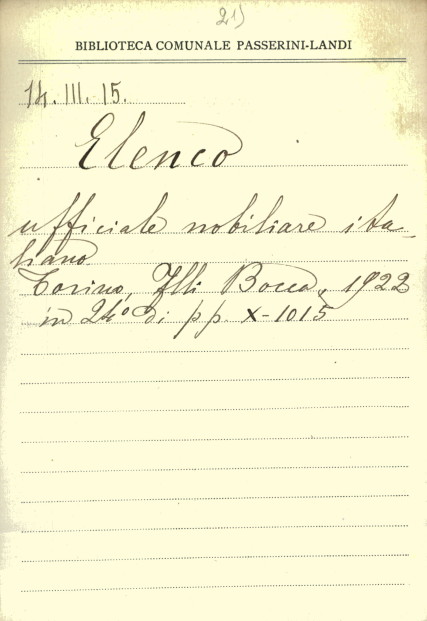 21)
BIBLIOTECA COMUNALE PASSERINI-LANDI
14. III. 15.
Elenco
ufficiale nobiliare ita-
liano
Torino, Flli Bocca, 1922
in 24º di pp. X-1015